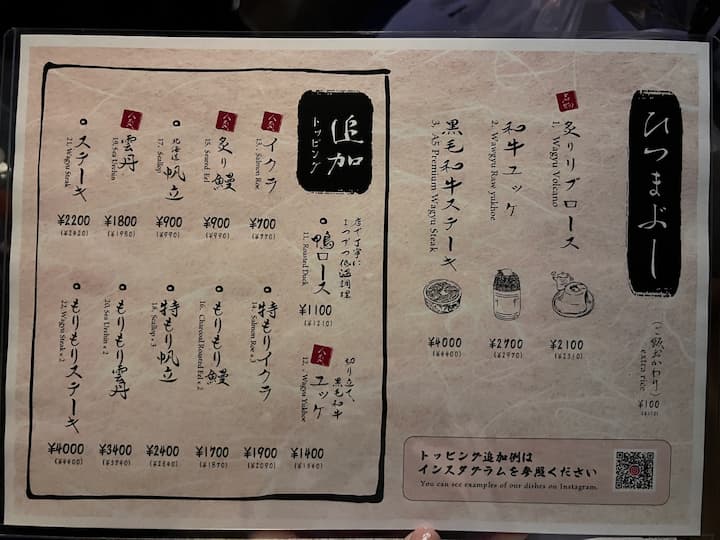 ひつまぶし
(ご飯おかわり)
extra rice
¥100
(¥110)
名物
炙りリブロース
1. Wagyu Volcano
¥2100
(¥2310)
和牛ユッケ
2. Wawgyu Raw yukhoe
¥2700
(¥2970)
黒毛和牛ステーキ
3. A5 Premium Wagyu Steak
¥4000
(¥4400)
トッピング追加例は
インスタグラムを参照ください
You can see examples of our dishes on Instagram.
追加
トッピング
店で丁寧に
1つづつ低温調理
鴨ロース
11. Roasted Duck
¥1100
(¥1210)
人気
切り立て、
黒毛和牛
ユッケ
12. Wagyu Yukhoe
¥1400
(¥1540)
人気
イクラ
13. Salmon Roe
¥700
(¥770)
特もりイクラ
14. Salmon Roe × 3
¥1900
(¥2090)
人気
炙り鰻
15. Seared Eel
¥900
(¥990)
もりもり鰻
16. Charcoal Roasted Eel × 2
¥1700
(¥1870)
北海道 帆立
17. Scallop
¥900
(¥990)
特もり帆立
18. Scallop × 3
¥2400
(¥2640)
人気
雲丹
19. Sea Urchin
¥1800
(¥1980)
もりもり雲丹
20. Sea Urchin × 2
¥3400
(¥3740)
ステーキ
21. Wagyu Steak
¥2200
(¥2420)
もりもりステーキ
22. Wagyu Steak × 2
¥4000
(¥4400)